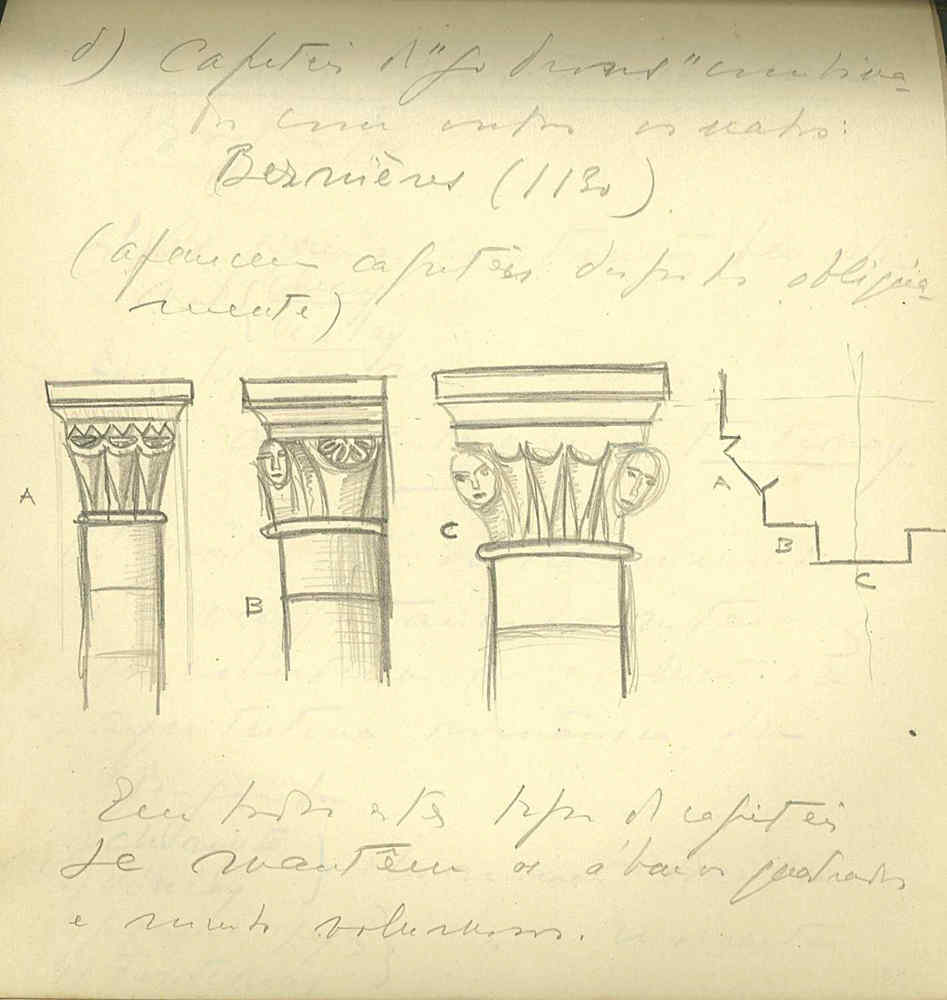 d) Capiteis d'"godrons" combina-
dos com outros ornatos:
Bernières (1130)
(aparecem capiteis dispostos obliqua-
mente)
A
B
C
A
B
C
Em todos estes tipos de capiteis
se mantêm os ábacos quadrados
e muito volumosos.